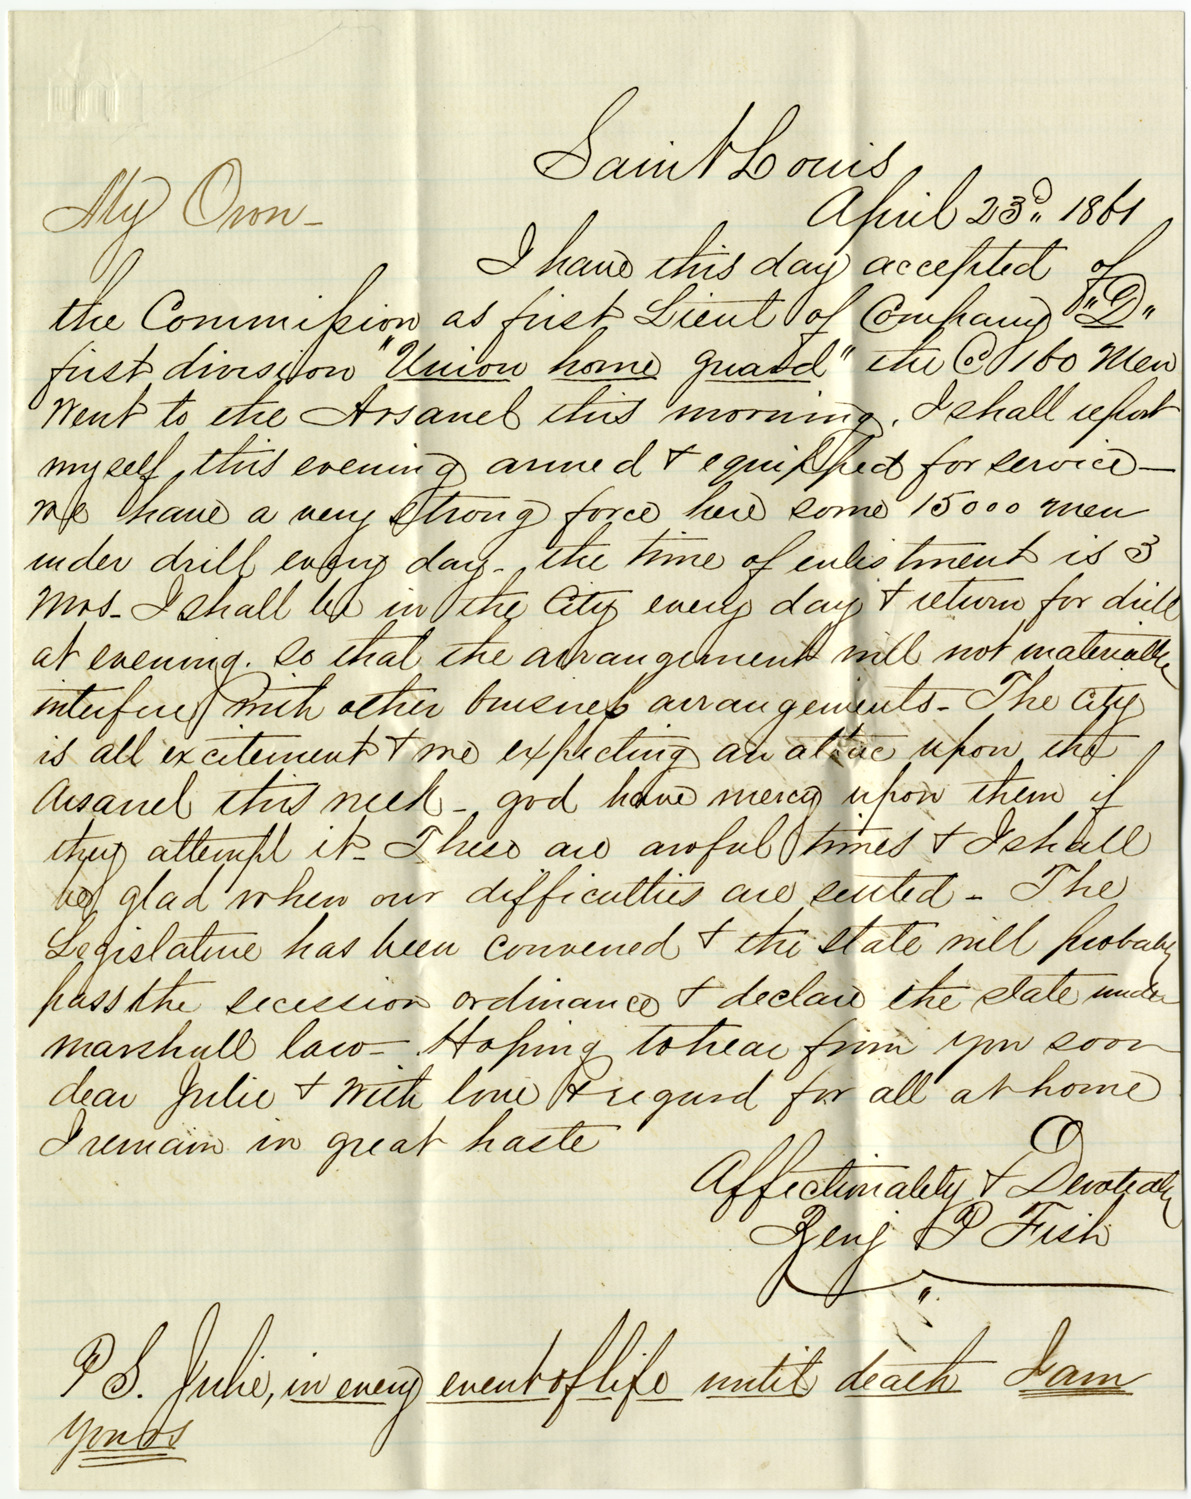 Saint Louis
April 23d. 1861
My Own -
I have this day accepted of
the Commission as first Lieut of Company "D"
first division "Union home guard" the Co 160 Men
went to the Arsanel this morning. I shall report
myself this evening armed & equipped for service -
we have a very strong force here some 15000 men
under drill every day - the time of enlistment is 3
Mos - I shall be in the City every day & return for drill
at evening. so that the arrangement will not materially
interfere with other business arrangements - The City
is all excitement & we expecting an attac upon the
Arsanel this week - god have mercy upon them if
they attempt it - These are awful times & I shall
be glad when our difficulties are setted - The
Legislature has been convened & the state will probably
pass the secession ordinance & declare the state under
marshall law - Hoping to hear from you soon
dear Julie & with love & regard for all at home
I remain in great haste
Affectionately & Devotedly
Benj P Fish
P S. Julie, in every event of life until death I am
yours